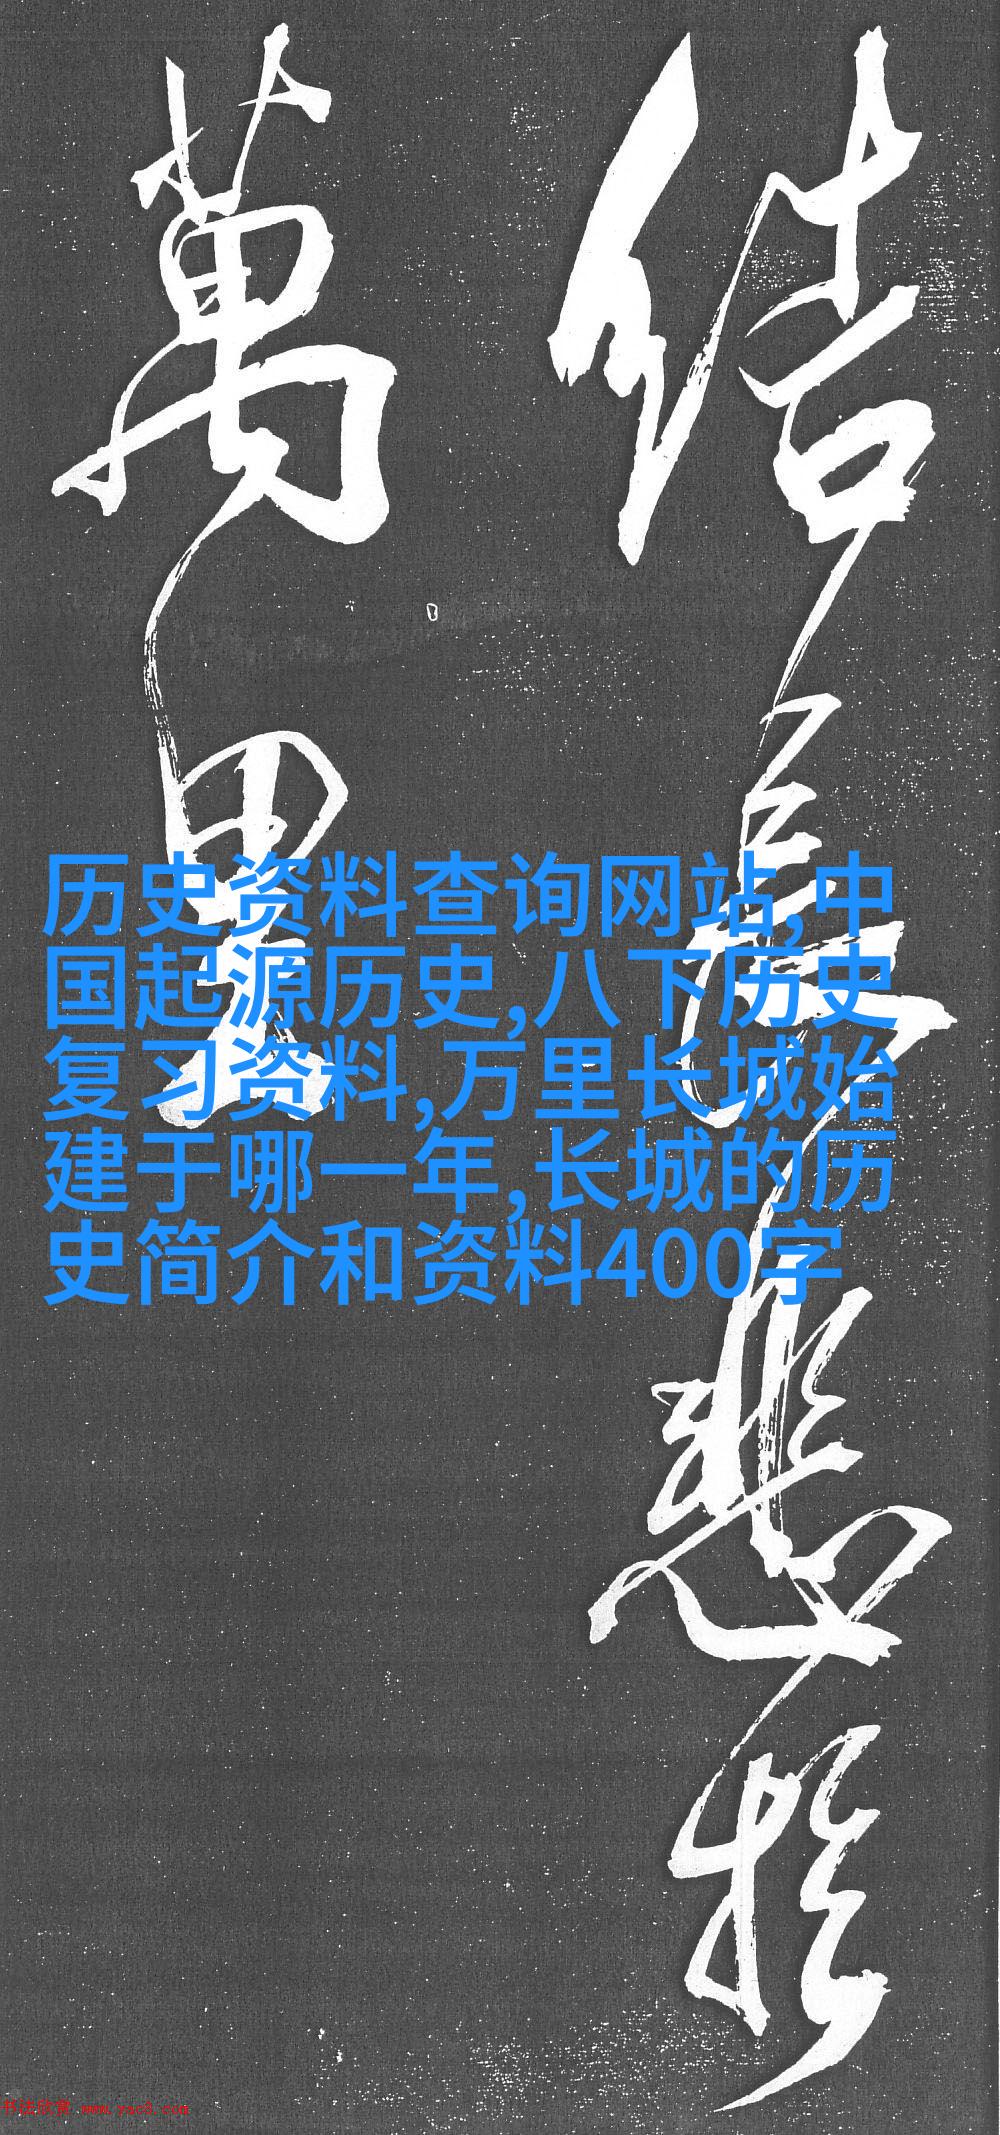 結長悲於
萬里
历史资料查询网站,中
国起源历史,八下历史
复习资料,万里长城始
建于哪一年,长城的历
史简介和资料400字
书法欣赏 www.yac8.com